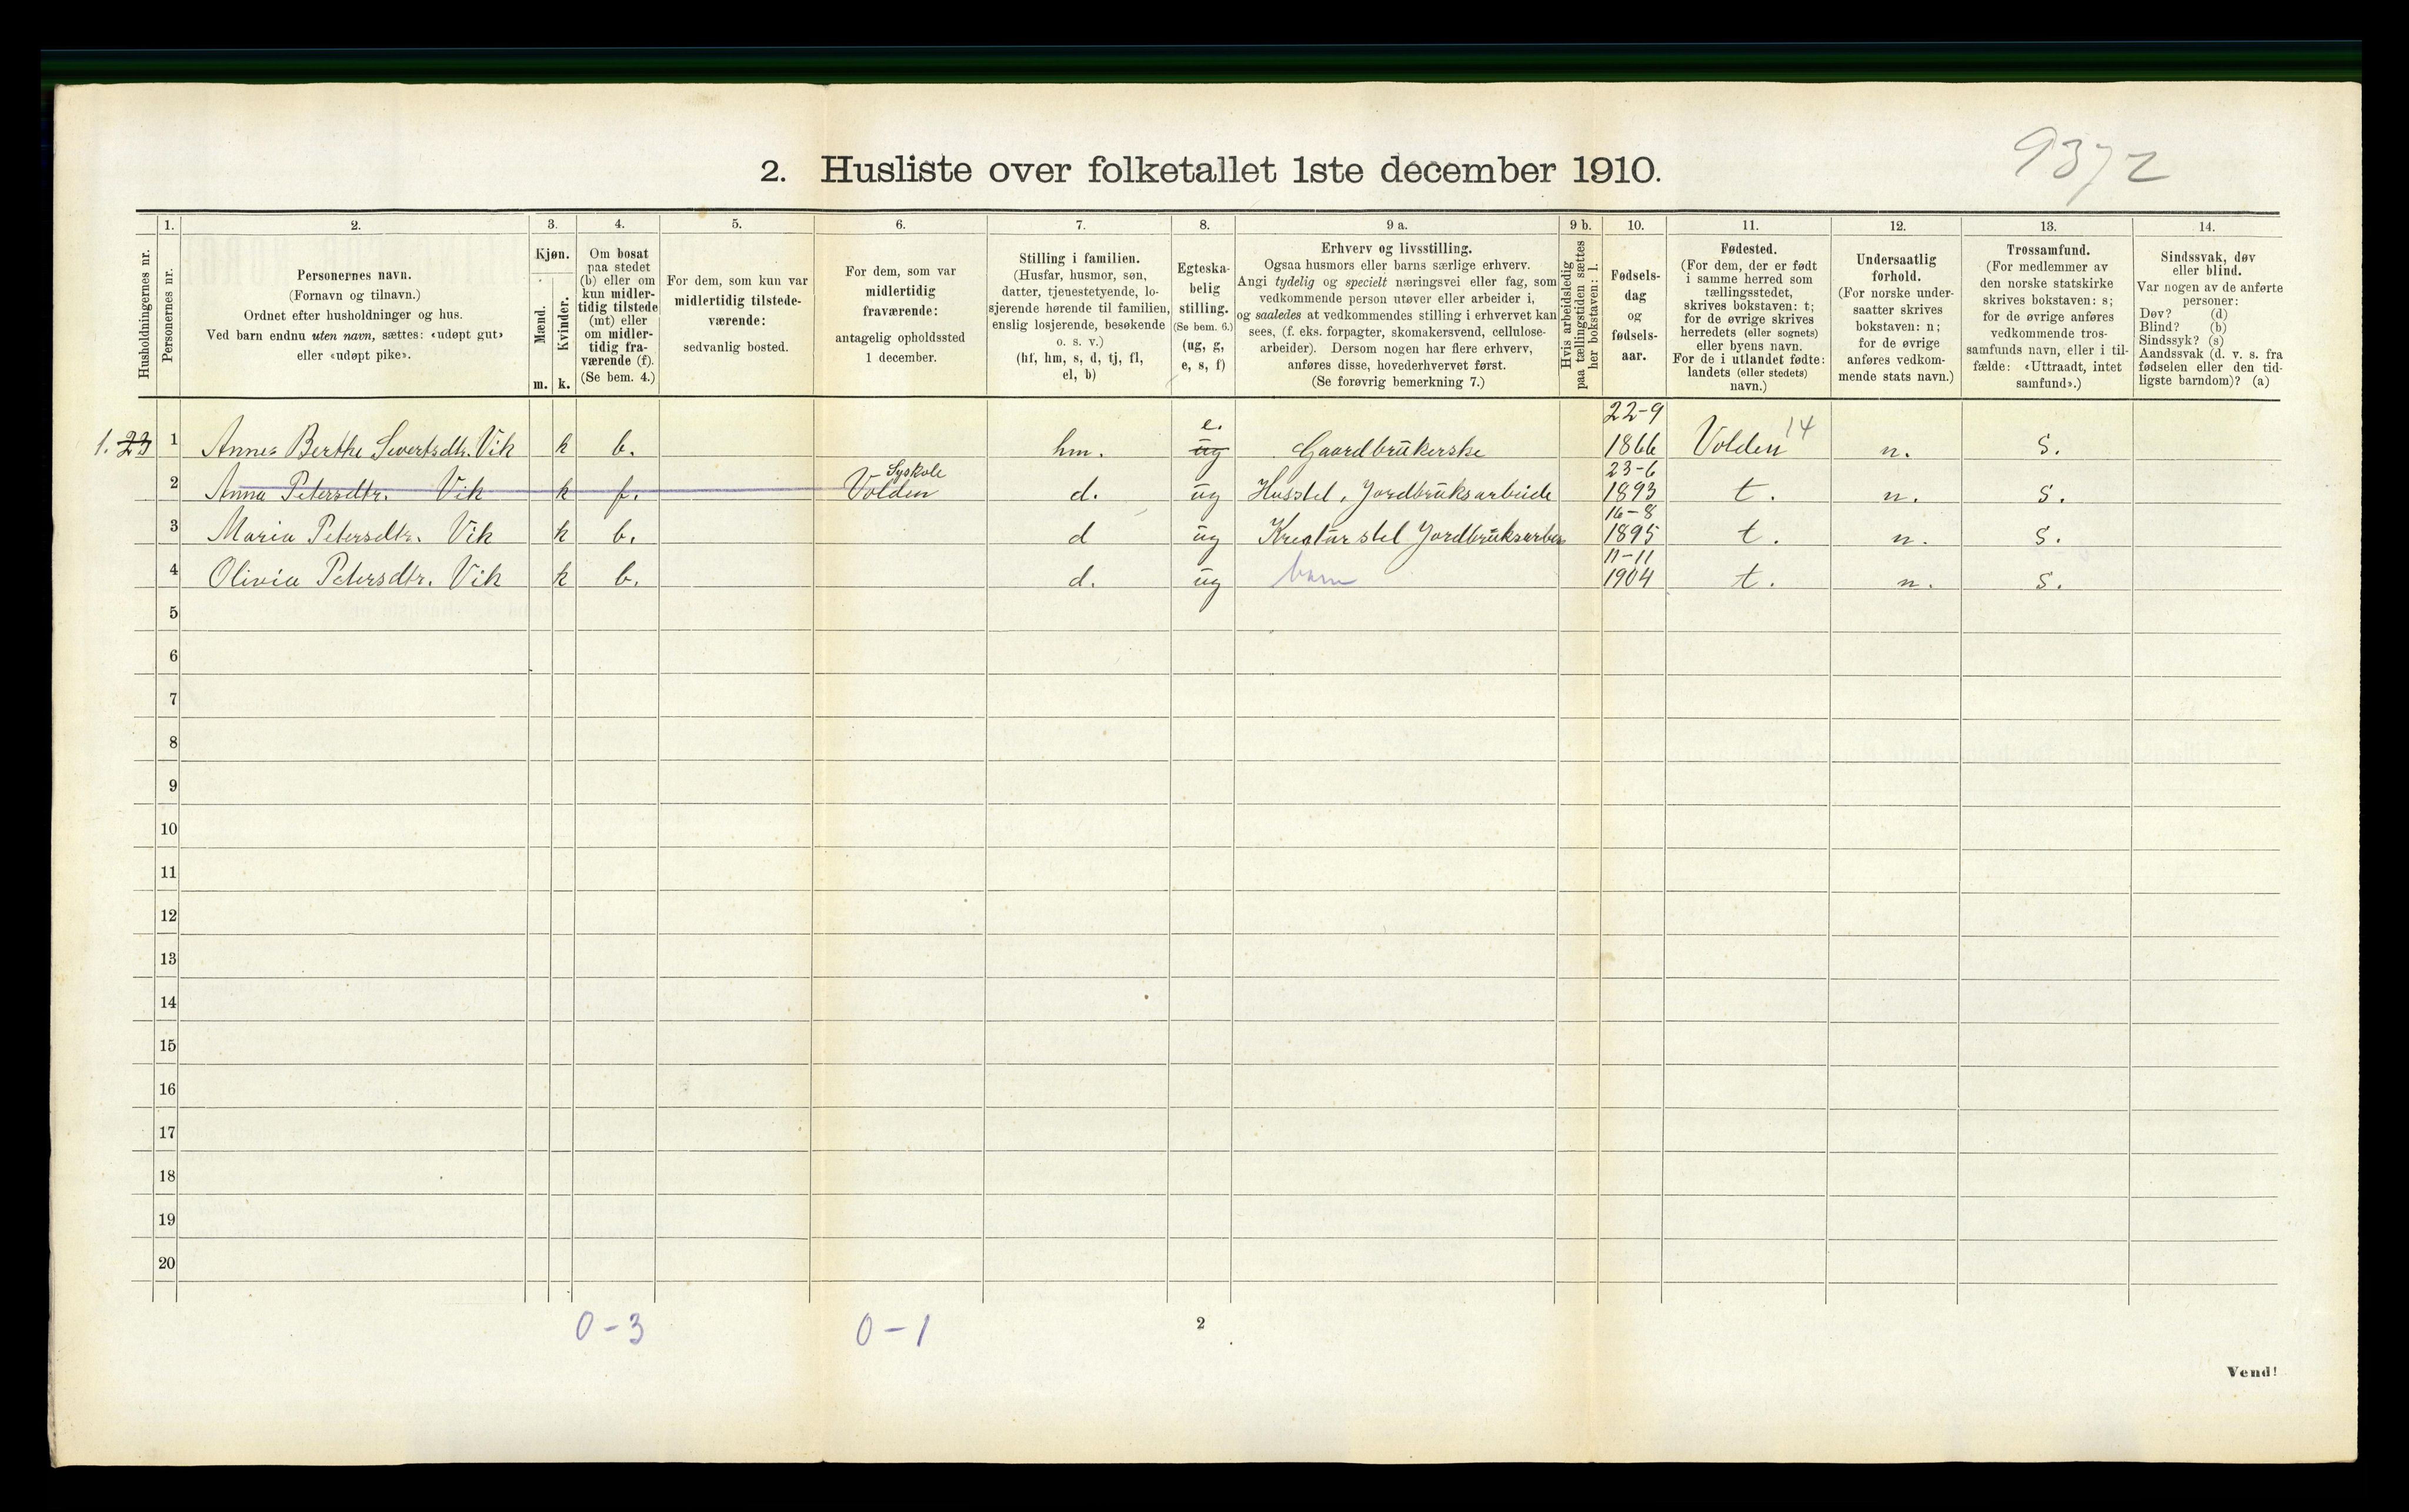 9372
2. Husliste over folketallet 1ste december 1910.
Husholdningernes nr.
1.
Personernes nr.
2.
Personernes navn.
(Fornavn og tilnavn.)
Ordnet efter husholdninger og hus.
Ved barn endnu uten navn, sættes: «udøpt gut»
eller «udøpt pike».
3.
Kjøn.
Mænd.
Kvinder.
m. k.
4.
Om bosat
paa stedet
(b) eller om
kun midler-
tidig tilstede
(mt) eller
om midler-
tidig fra-
værende (f).
(Se bem. 4.)
5.
For dem, som kun var
midlertidig tilstede-
værende:
sedvanlig bosted.
6.
For dem, som var
midlertidig
fraværende:
antagelig opholdssted
1 december.
7.
Stilling i familien.
(Husfar, husmor, søn,
datter, tjenestetyende, lo-
sjerende hørende til familien,
enslig losjerende, besøkende
o. s. v.)
(hf, hm, s, d, tj, fl,
el, b)
8.
Egteska-
belig
stilling.
(Se bem. 6.)
(ug, g,
e, s, f)
9 a.
Erhverv og livsstilling.
Ogsaa husmors eller barns særlige erhverv.
Angi tydelig og specielt næringsvei eller fag, som
vedkommende person utøver eller arbeider i,
og saaledes at vedkommendes stilling i erhvervet kan
sees, (f. eks. forpagter, skomakersvend, cellulose-
arbeider). Dersom nogen har flere erhverv,
anføres disse, hovederhvervet først.
(Se forøvrig bemerkning 7.)
9 b.
Hvis arbeidsledig
paa tællingstiden sættes
her bokstaven: l.
10.
Fødsels-
dag
og
fødsels-
aar.
11.
Fødested.
(For dem, der er født
i samme herred som
tællingsstedet,
skrives bokstaven: t;
for de øvrige skrives
herredets (eller sognets)
eller byens navn.
For de i utlandet fødte:
landets (eller stedets)
navn.)
12.
Undersaatlig
forhold.
(For norske under-
saatter skrives
bokstaven: n;
for de øvrige
anføres vedkom-
mende stats navn.)
13.
Trossamfund.
(For medlemmer av
den norske statskirke
skrives bokstaven: s;
for de øvrige anføres
vedkommende tros-
samfunds navn, eller i til-
fælde: «Uttraadt, intet
samfund».)
14.
Sindssvak, døv
eller blind.
Var nogen av de anførte
personer:
Døv? (d)
Blind? (b)
Sindssyk? (s)
Aandssvak (d. v. s. fra
fødselen eller den tid-
ligste barndom)? (a)
1. 23 1 Anne Berthe Sivertsdtr. Vik k b. hm. ug e. Gaardbrukerske 22-9 1866 Volden 14 n. s.
2 Anna Petersdtr. Vik k f. Syskole Volden d. ug Husstel, Jordbruksarbeide 23-6 1893 t. n. s.
3 Maria Petersdtr. Vik k b. d ug Kreaturstel Jordbruksarbei 16-8 1895 t. n. s.
4 Olivia Petersdtr. Vik k b. d. ug barn 11-11 1904 t. n. s.
5
6
7
8
9
10
11
12
13
14
15
16
17
18
19
20
0-3 0-1
2
Vend!